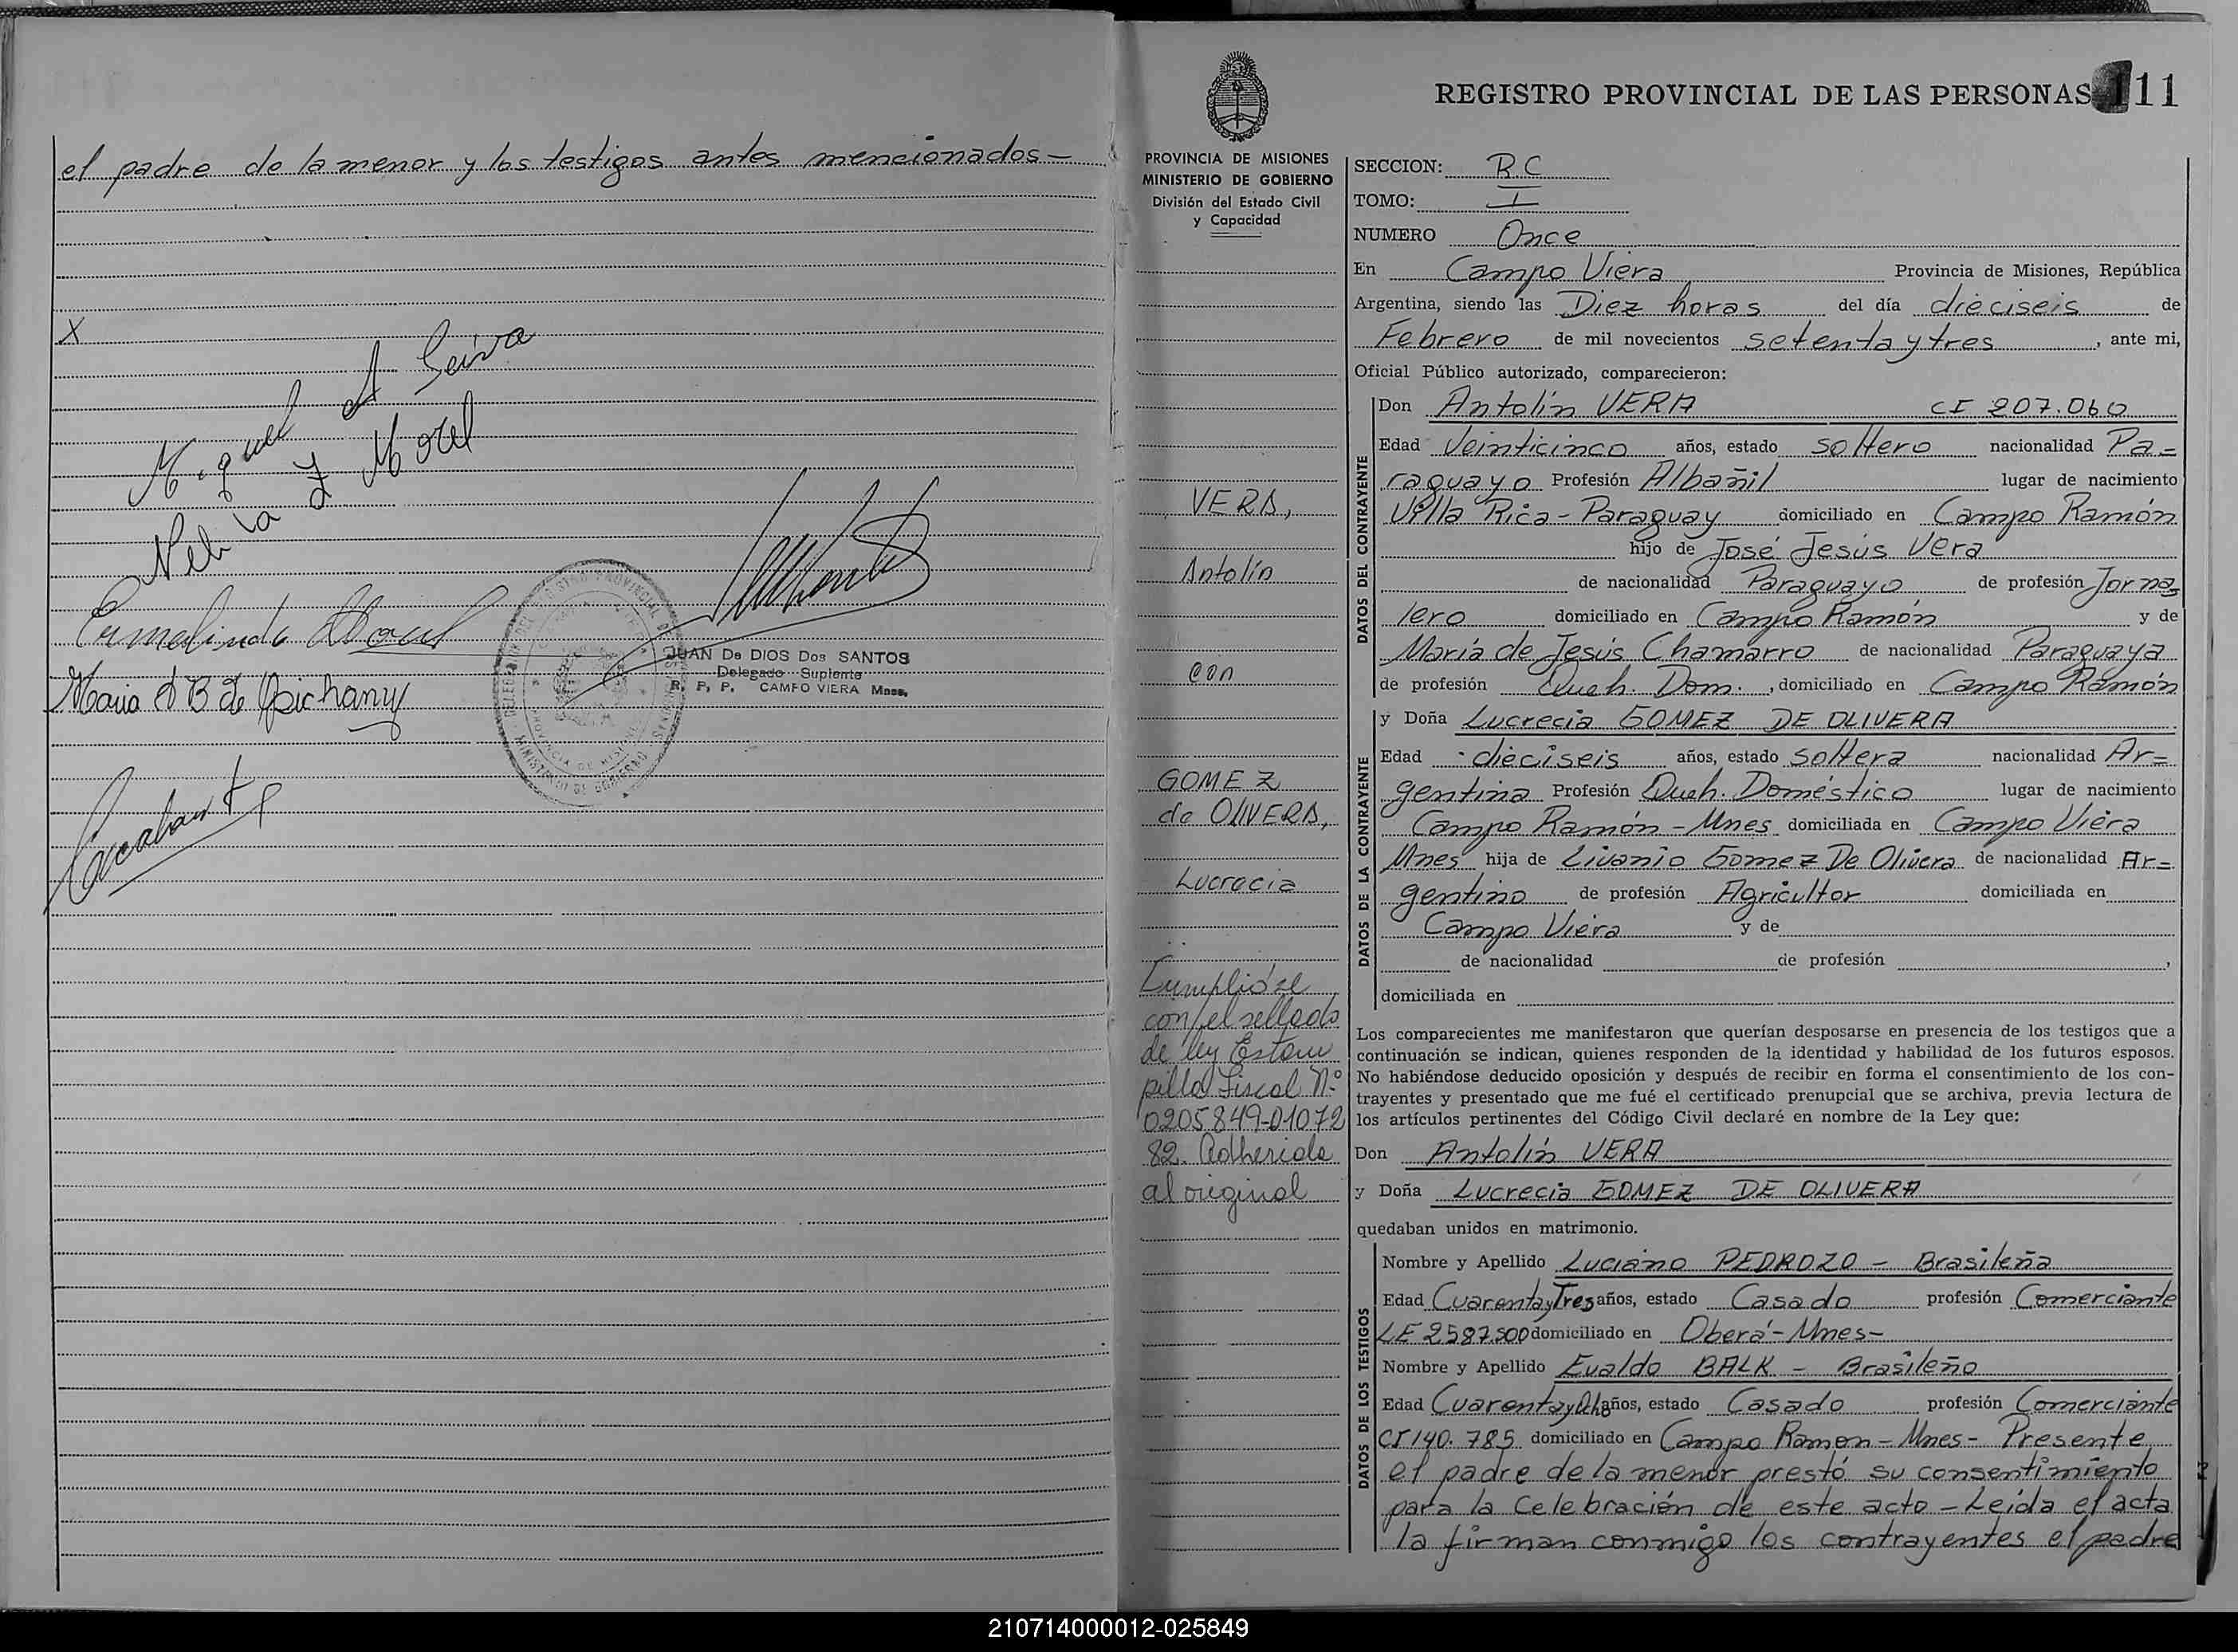 el padre de la menor y los testigos antes mencionados-
X
Miguel A Seiva
Nelida Y Morel
Ermelinda Morel
Maria A B de
JUAN De DIOS Dos SANTOS
Delegado Suplente
R. P. P. CAMPO VIERA Mnes.
REGISTRO PROVINCIAL DE LAS PERSONAS 111
PROVINCIA DE MISIONES
MINISTERIO DE GOBIERNO
División del Estado Civil
y Capacidad
VERA,
Antolín
con
GOMEZ
de OLIVERA,
Lucrecia
Cumplióse
con el sellado
de ley Estam
pilla Fiscal Nº
0205849-01072
82. Adherida
al original
SECCION: R.C
TOMO: I
NUMERO Once
En Campo Viera Provincia de Misiones, República
Argentina, siendo las Diez horas del día dieciseis de
Febrero de mil novecientos setenta y tres, ante mi,
Oficial Público autorizado, comparecieron:
DATOS DEL CONTRAYENTE
Don Antolín VERA CI 207.060
Edad Veinticinco años, estado soltero nacionalidad Pa=
raguayo Profesión Albañil lugar de nacimiento
Villa Rica - Paraguay domiciliado en Campo Ramón
hijo de José Jesús Vera
de nacionalidad Paraguayo de profesión Jorna=
lero domiciliado en Campo Ramón y de
María de Jesús Chamarro de nacionalidad Paraguaya
de profesión Queh. Dom., domiciliado en Campo Ramón
DATOS DE LA CONTRAYENTE
y Doña Lucrecia GOMEZ DE OLIVERA
Edad dieciseis años, estado soltera nacionalidad Ar=
gentina Profesión Queh. Doméstico lugar de nacimiento
Campo Ramón - Mnes domiciliada en Campo Viera
Mnes hija de Livanio Gomez De Olivera de nacionalidad Ar=
gentino de profesión Agricultor domiciliada en
Campo Viera y de
de nacionalidad de profesión ,
domiciliada en
Los comparecientes me manifestaron que querían desposarse en presencia de los testigos que a
continuación se indican, quienes responden de la identidad y habilidad de los futuros esposos.
No habiéndose deducido oposición y después de recibir en forma el consentimiento de los con-
trayentes y presentado que me fué el certificado prenupcial que se archiva, previa lectura de
los artículos pertinentes del Código Civil declaré en nombre de la Ley que:
Don Antolín VERA
y Doña Lucrecia GOMEZ DE OLIVERA
quedaban unidos en matrimonio.
DATOS DE LOS TESTIGOS
Nombre y Apellido Luciano PEDROZO - Brasileña
Edad Cuarenta y Tres años, estado Casado profesión Comerciante
LE 2587500 domiciliado en Oberá - Mnes-
Nombre y Apellido Evaldo BALK - Brasileño
Edad Cuarenta y Ocho años, estado Casado profesión Comerciante
CI 140.785 domiciliado en Campo Ramon - Mnes- Presente
el padre de la menor prestó su consentimiento
para la Celebración de este acto - Leída el acta
la firman conmigo los contrayentes el padre
210714000012-025849